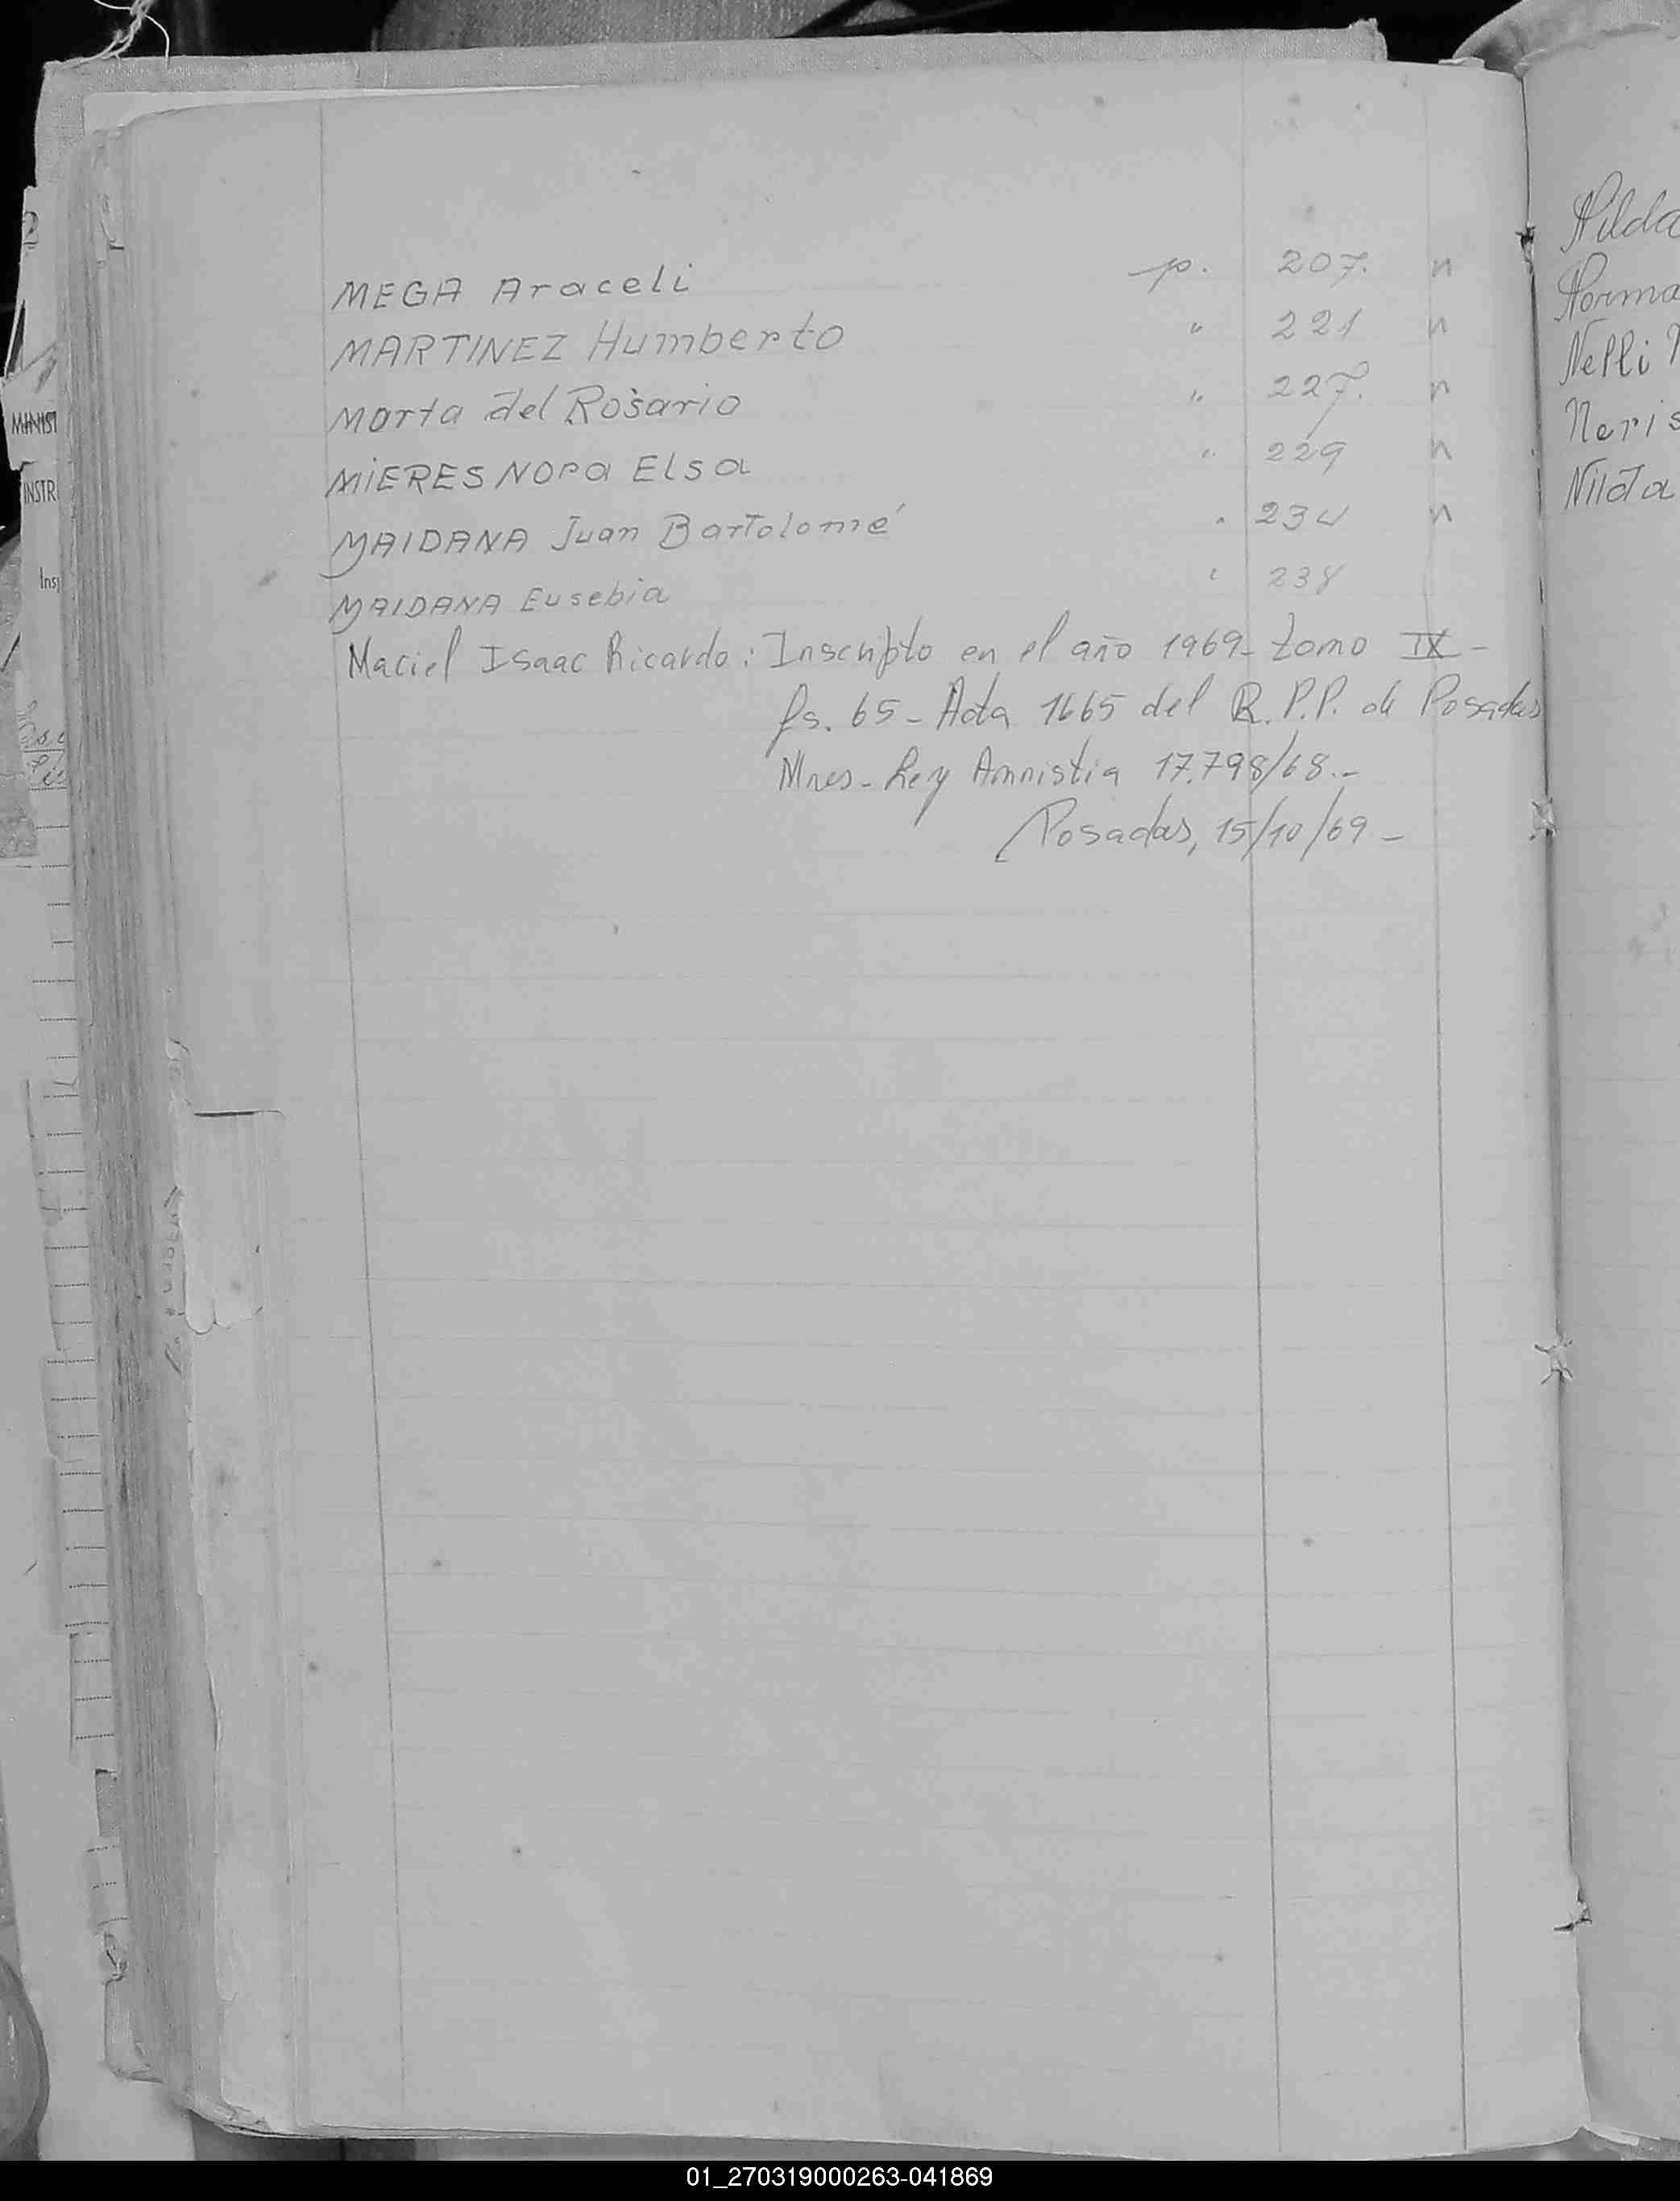 MEGA Araceli p. 207. n
MARTINEZ Humberto " 221 n
Marta del Rosario " 227. n
MIERES NORA Elsa " 229 n
MAIDANA Juan Bartolomé " 234 n
MAIDANA Eusebia " 238
Maciel Isaac Ricardo: Inscripto en el año 1969 - tomo IX -
fs. 65 - Acta 1665 del R.P.P. de Posadas
Mnes - Ley Amnistia 17.798/68.-
Posadas, 15/10/69 -
Nilda
Norma
Nelli
Neris
Nilda
2
MINIST
INSTR
Insp
01_270319000263-041869